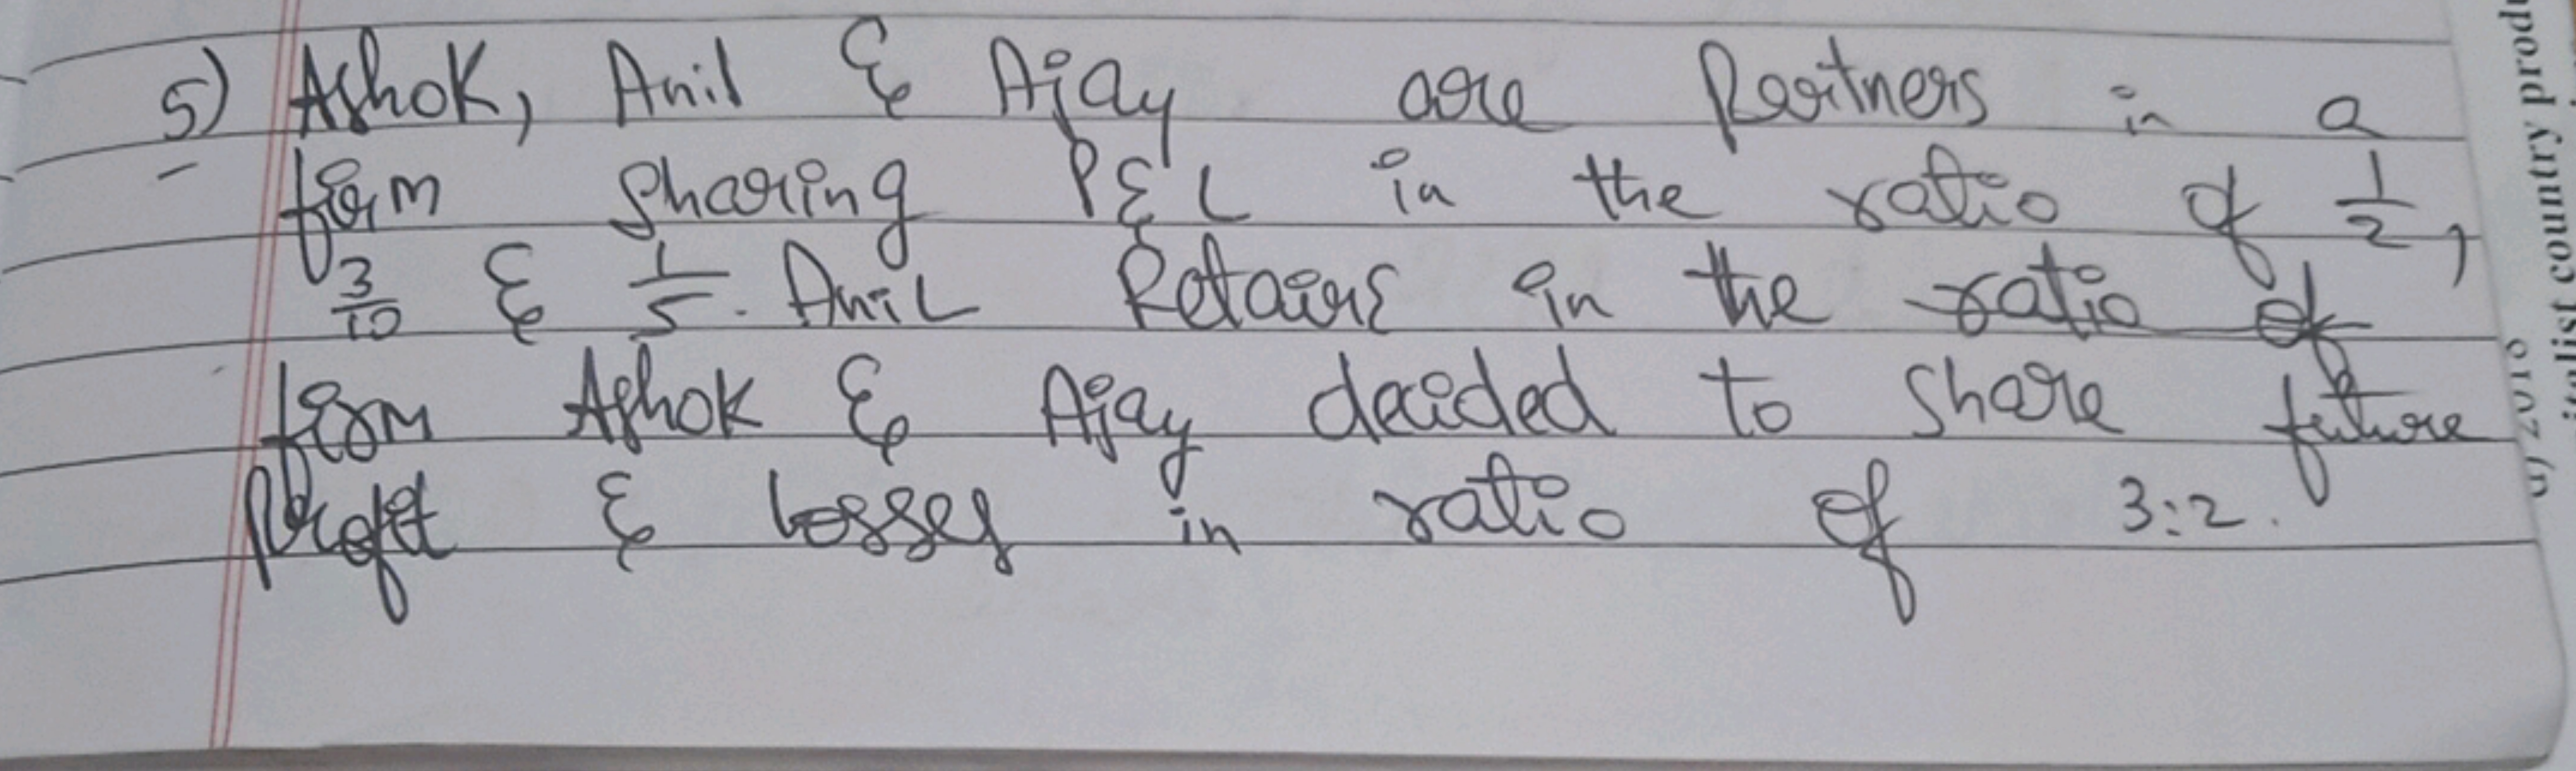 5) Ashok, Anil & Ajay are Partners in a
firm sharing P&L in the ratio of 1/2,
3/10 & 1/5. Anil Retairs in the ratio of
firm Ashok & Ajay decided to share future
Profit & losses in ratio of 3:2.
country produ
2018
italist